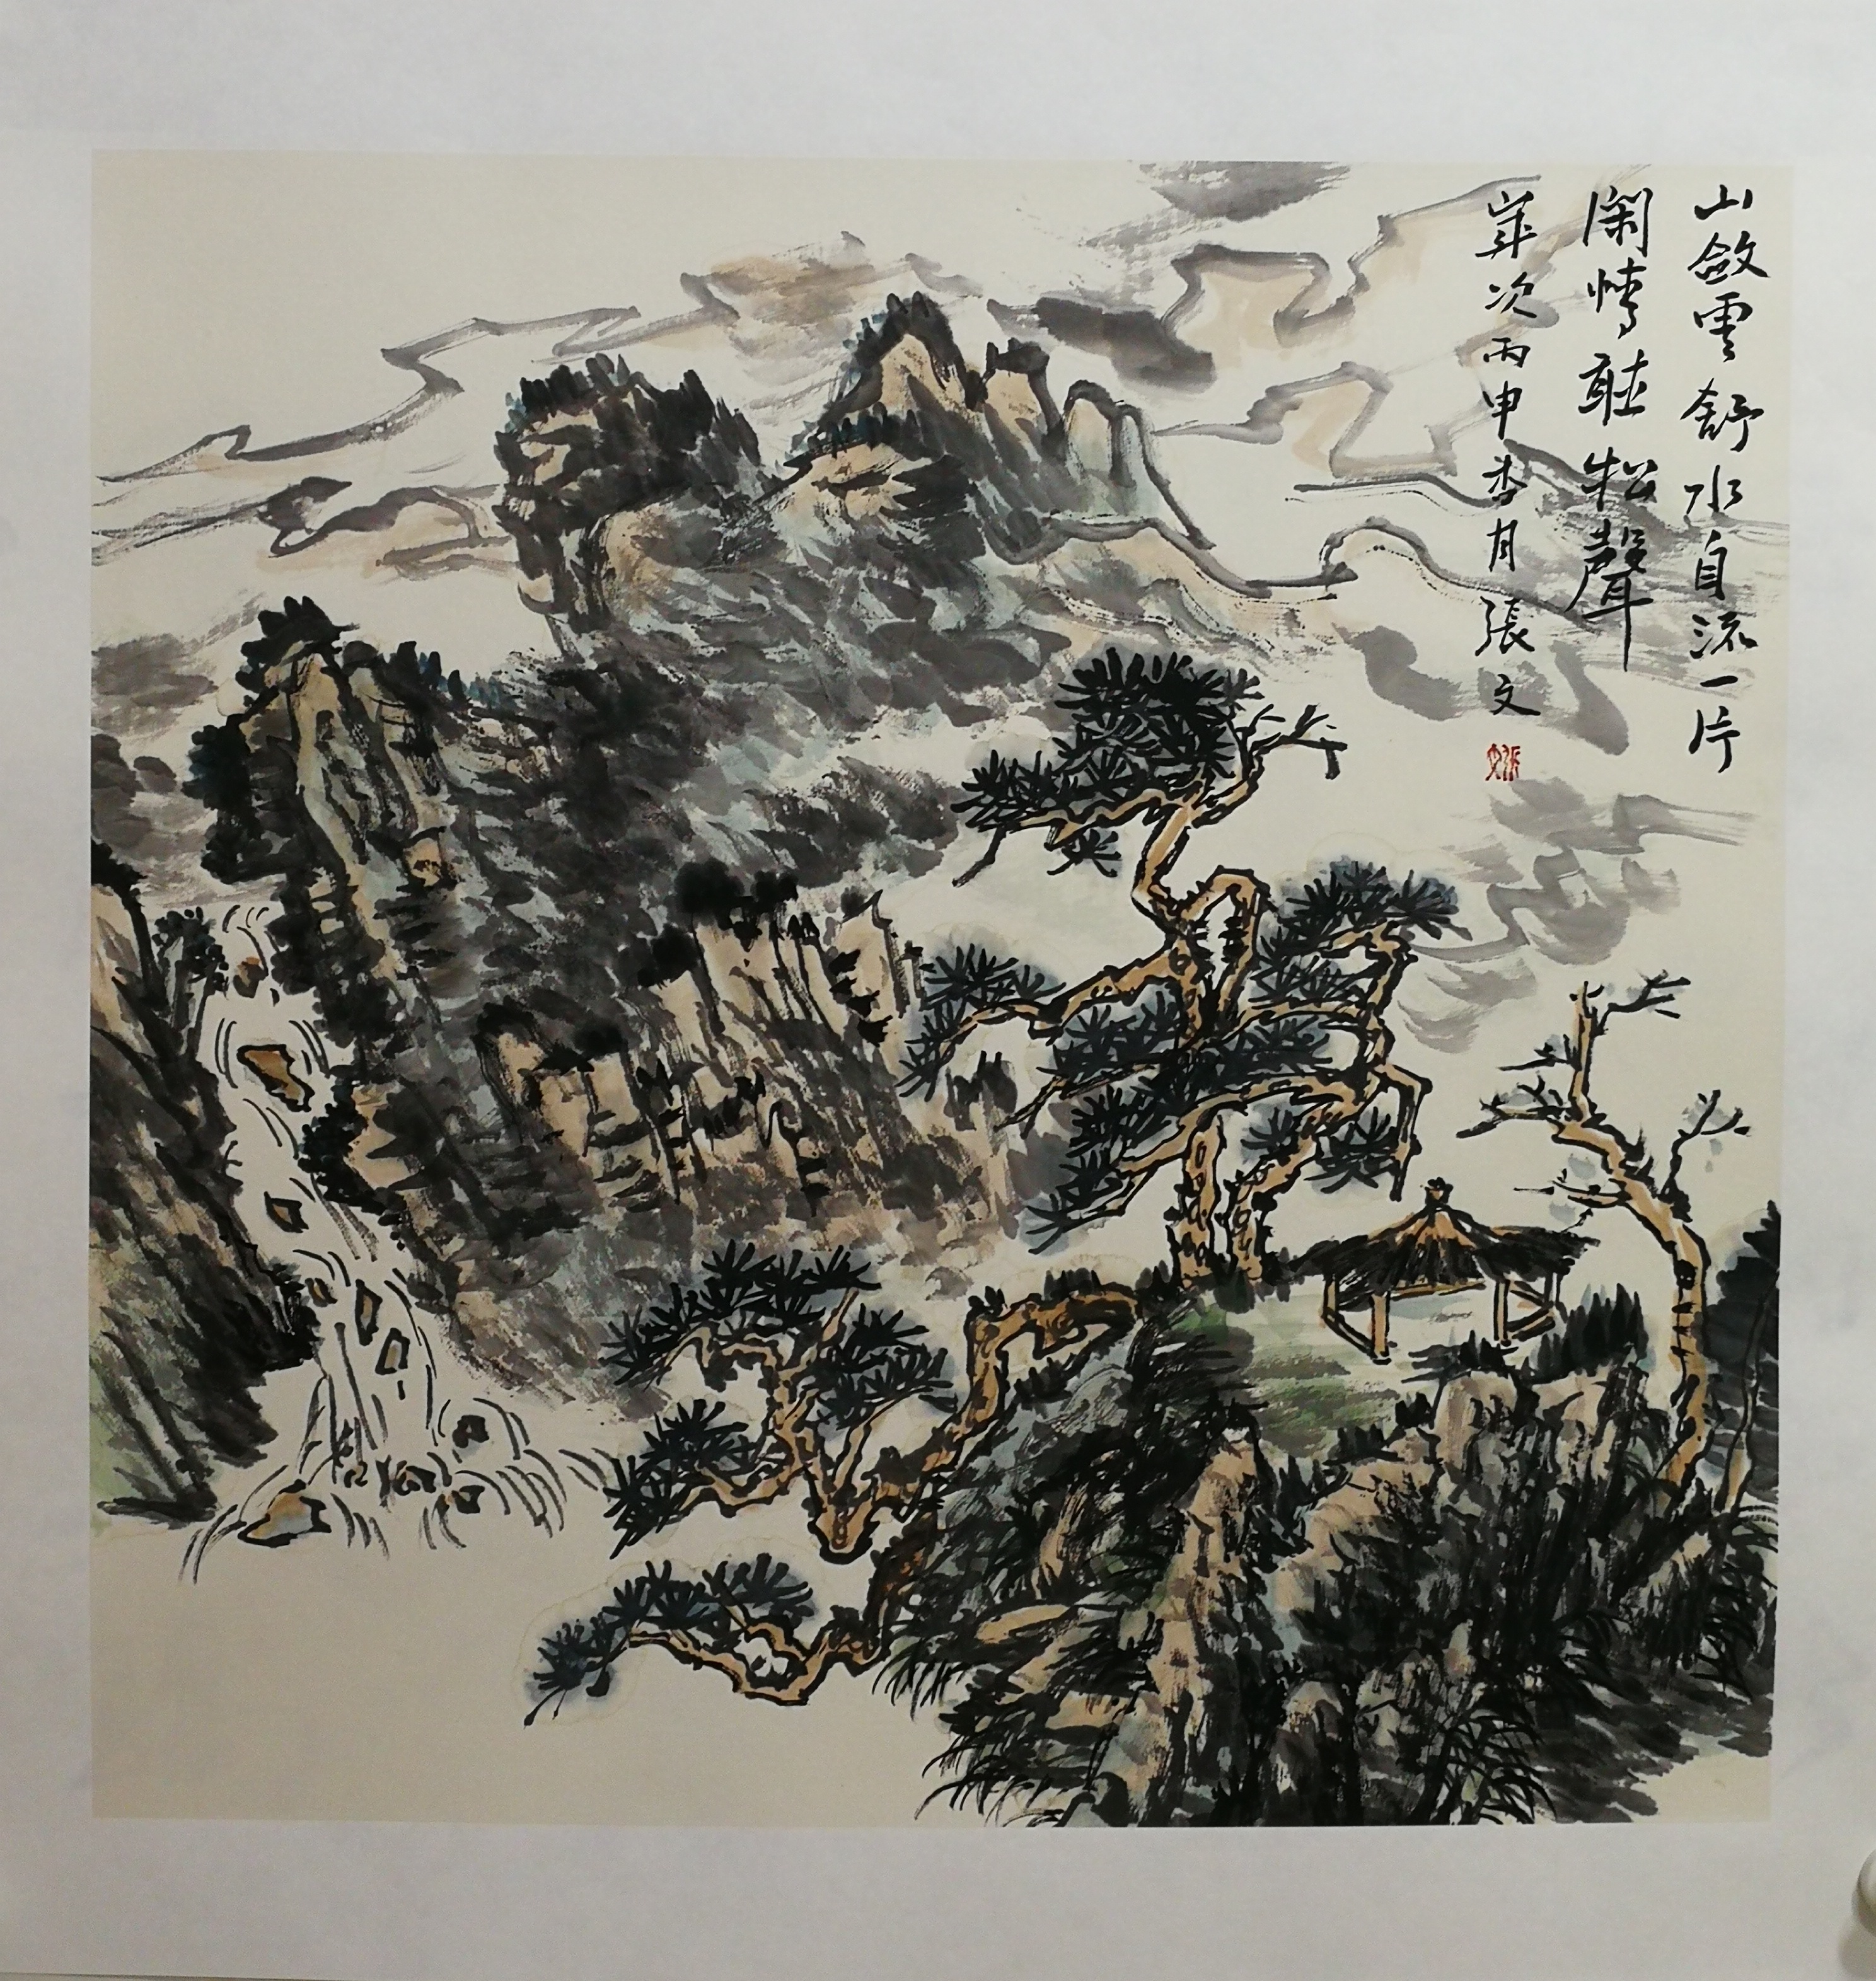 山斂雲舒水自流一片
閑情聽松聲
嵗次丙申杏月張文
張文